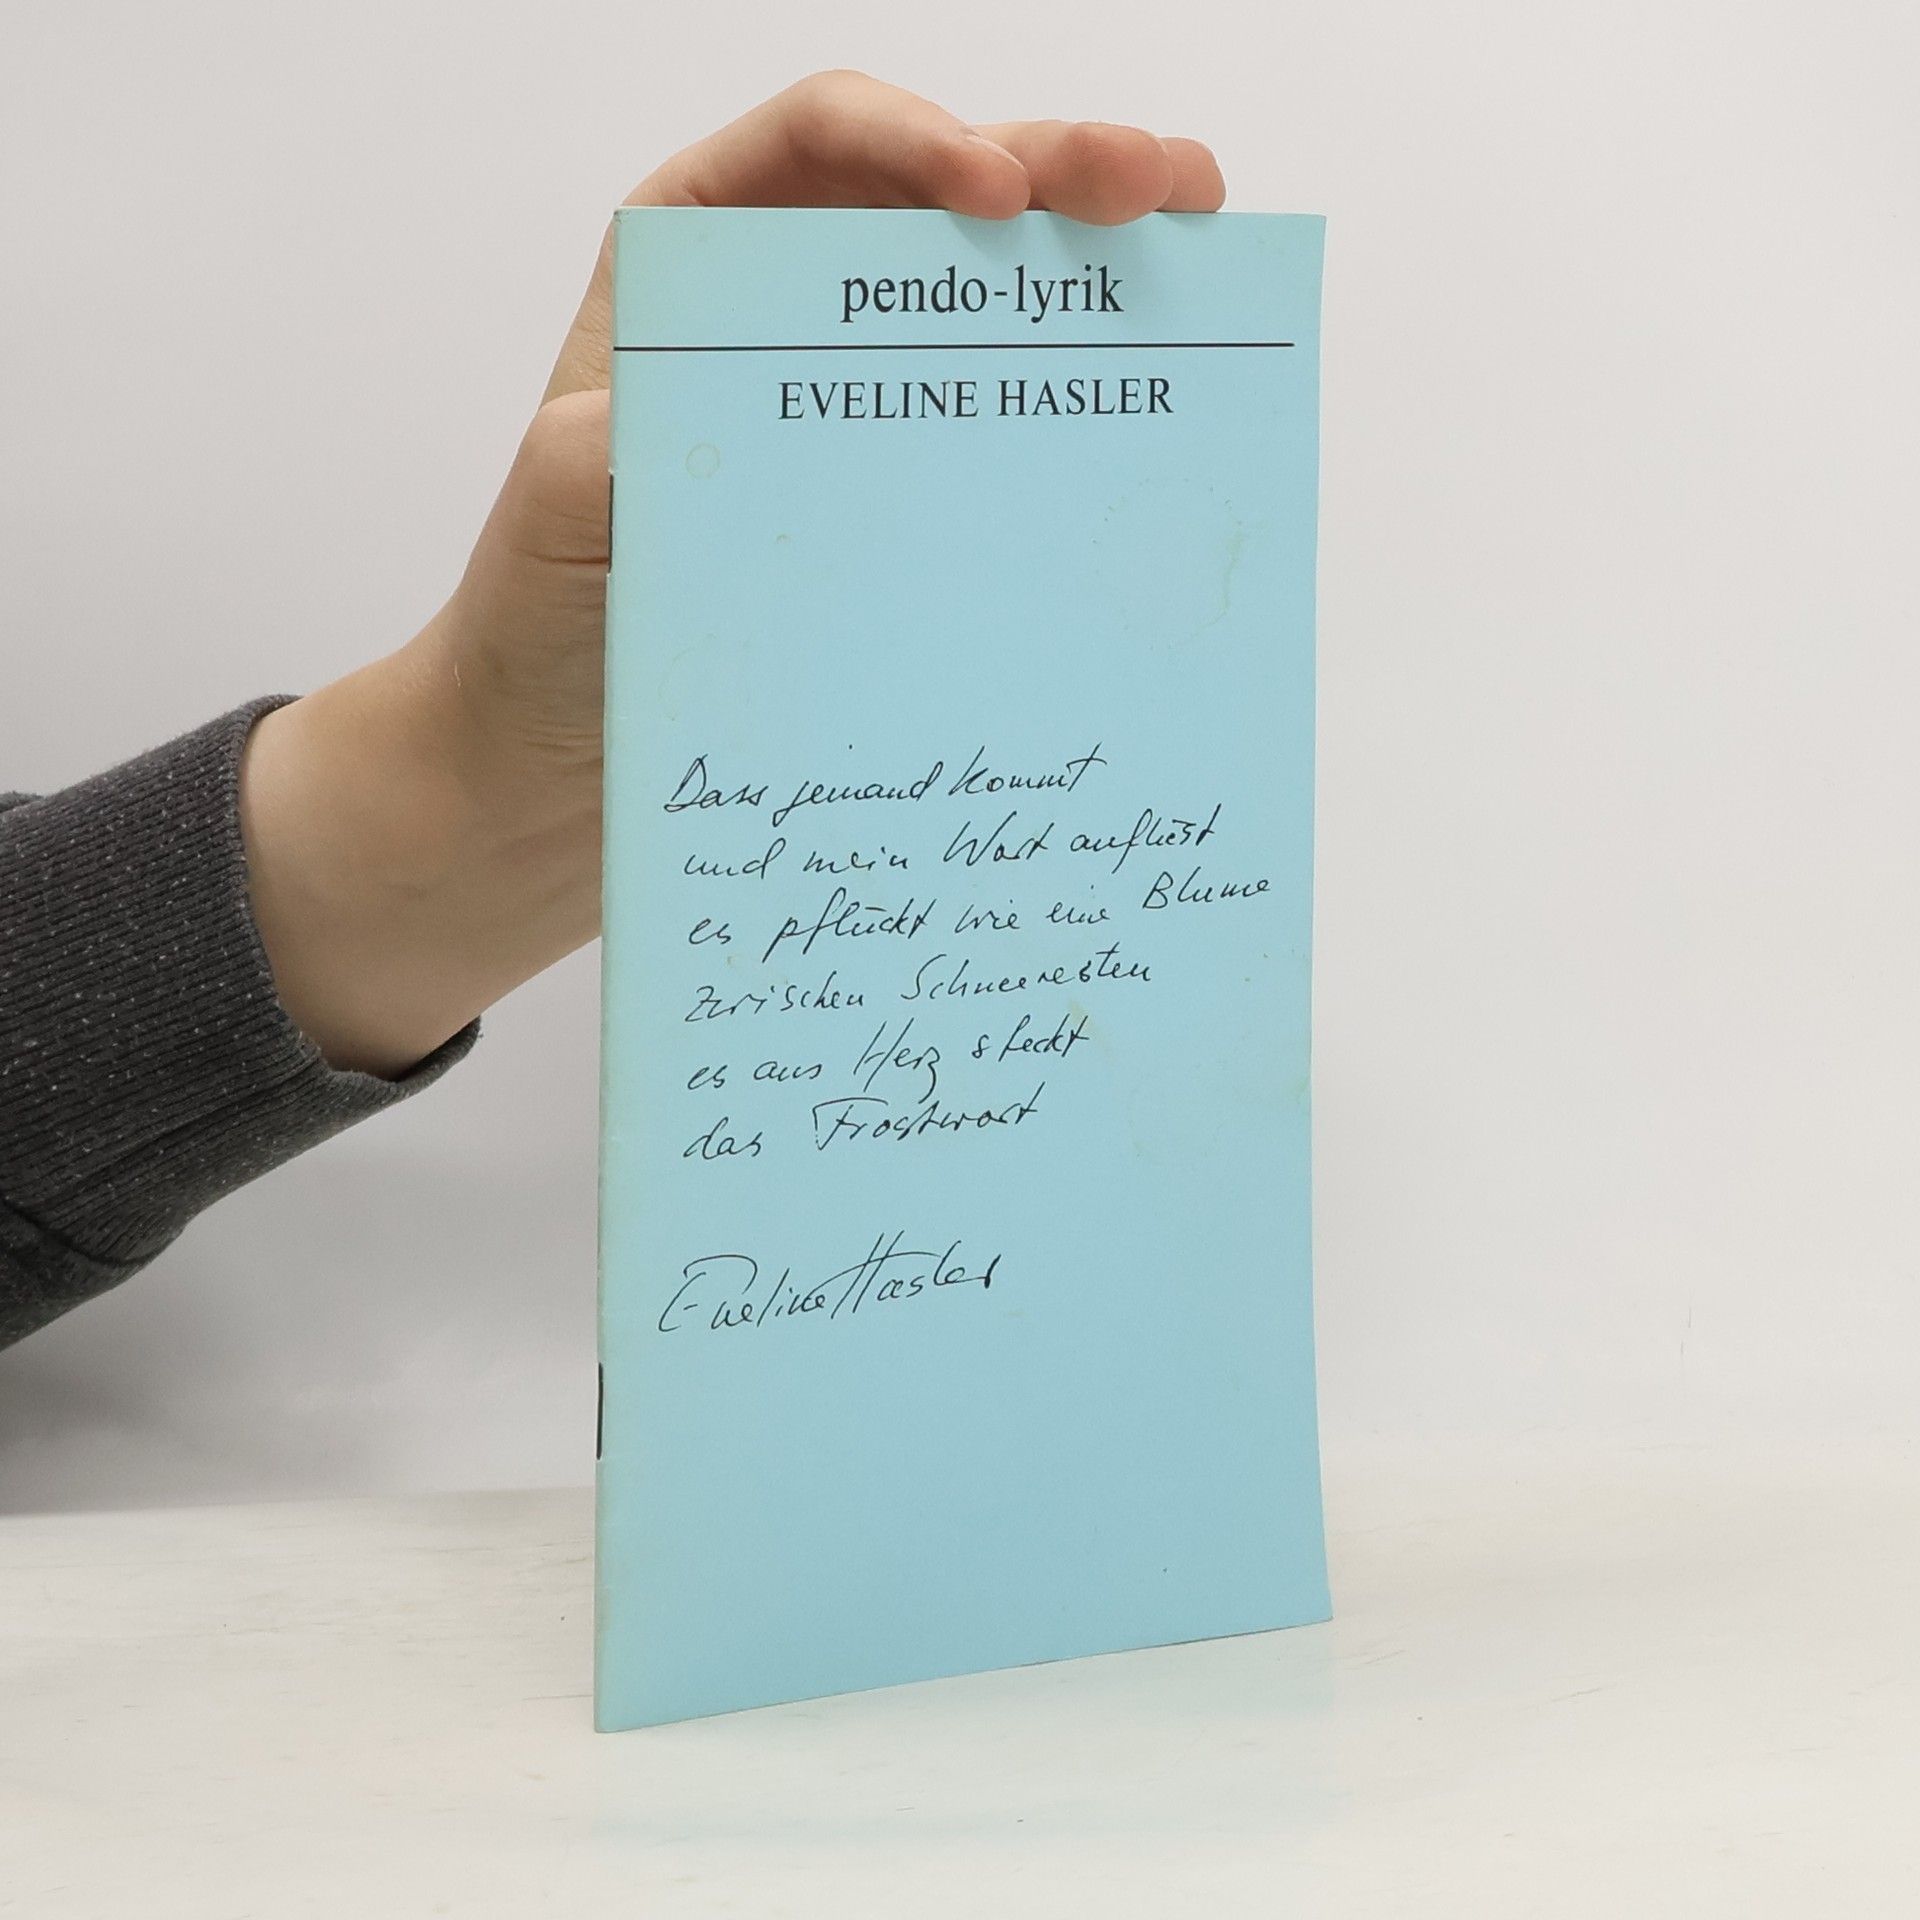 pendo-lyrik
EVELINE HASLER
Dass jemand kommt
und mein Wort aufliest
es pflückt wie eine Blume
zwischen Schneeresten
es ans Herz steckt
das Frostwort
Eveline Hasler